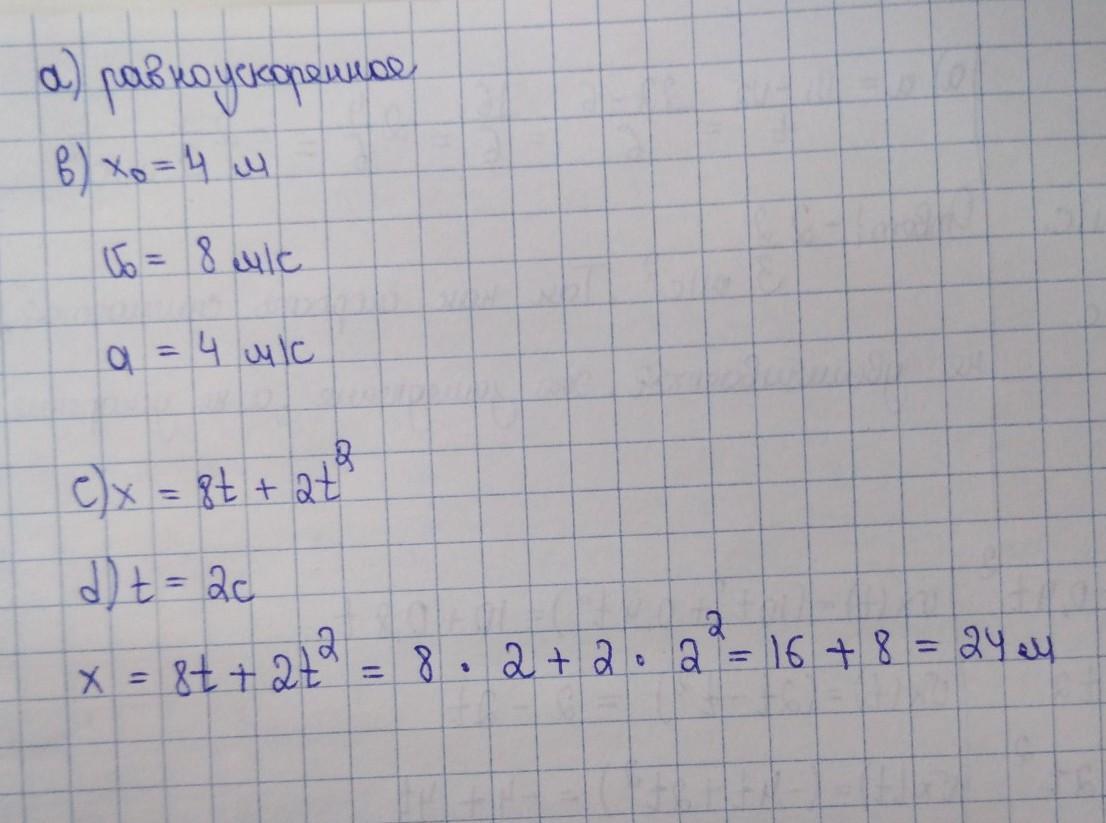 a) равноускоренное
b) x₀ = 4 м
v₀ = 8 м/с
a = 4 м/с
c) x = 8t + 2t²
d) t = 2с
x = 8t + 2t² = 8 · 2 + 2 · 2² = 16 + 8 = 24 м